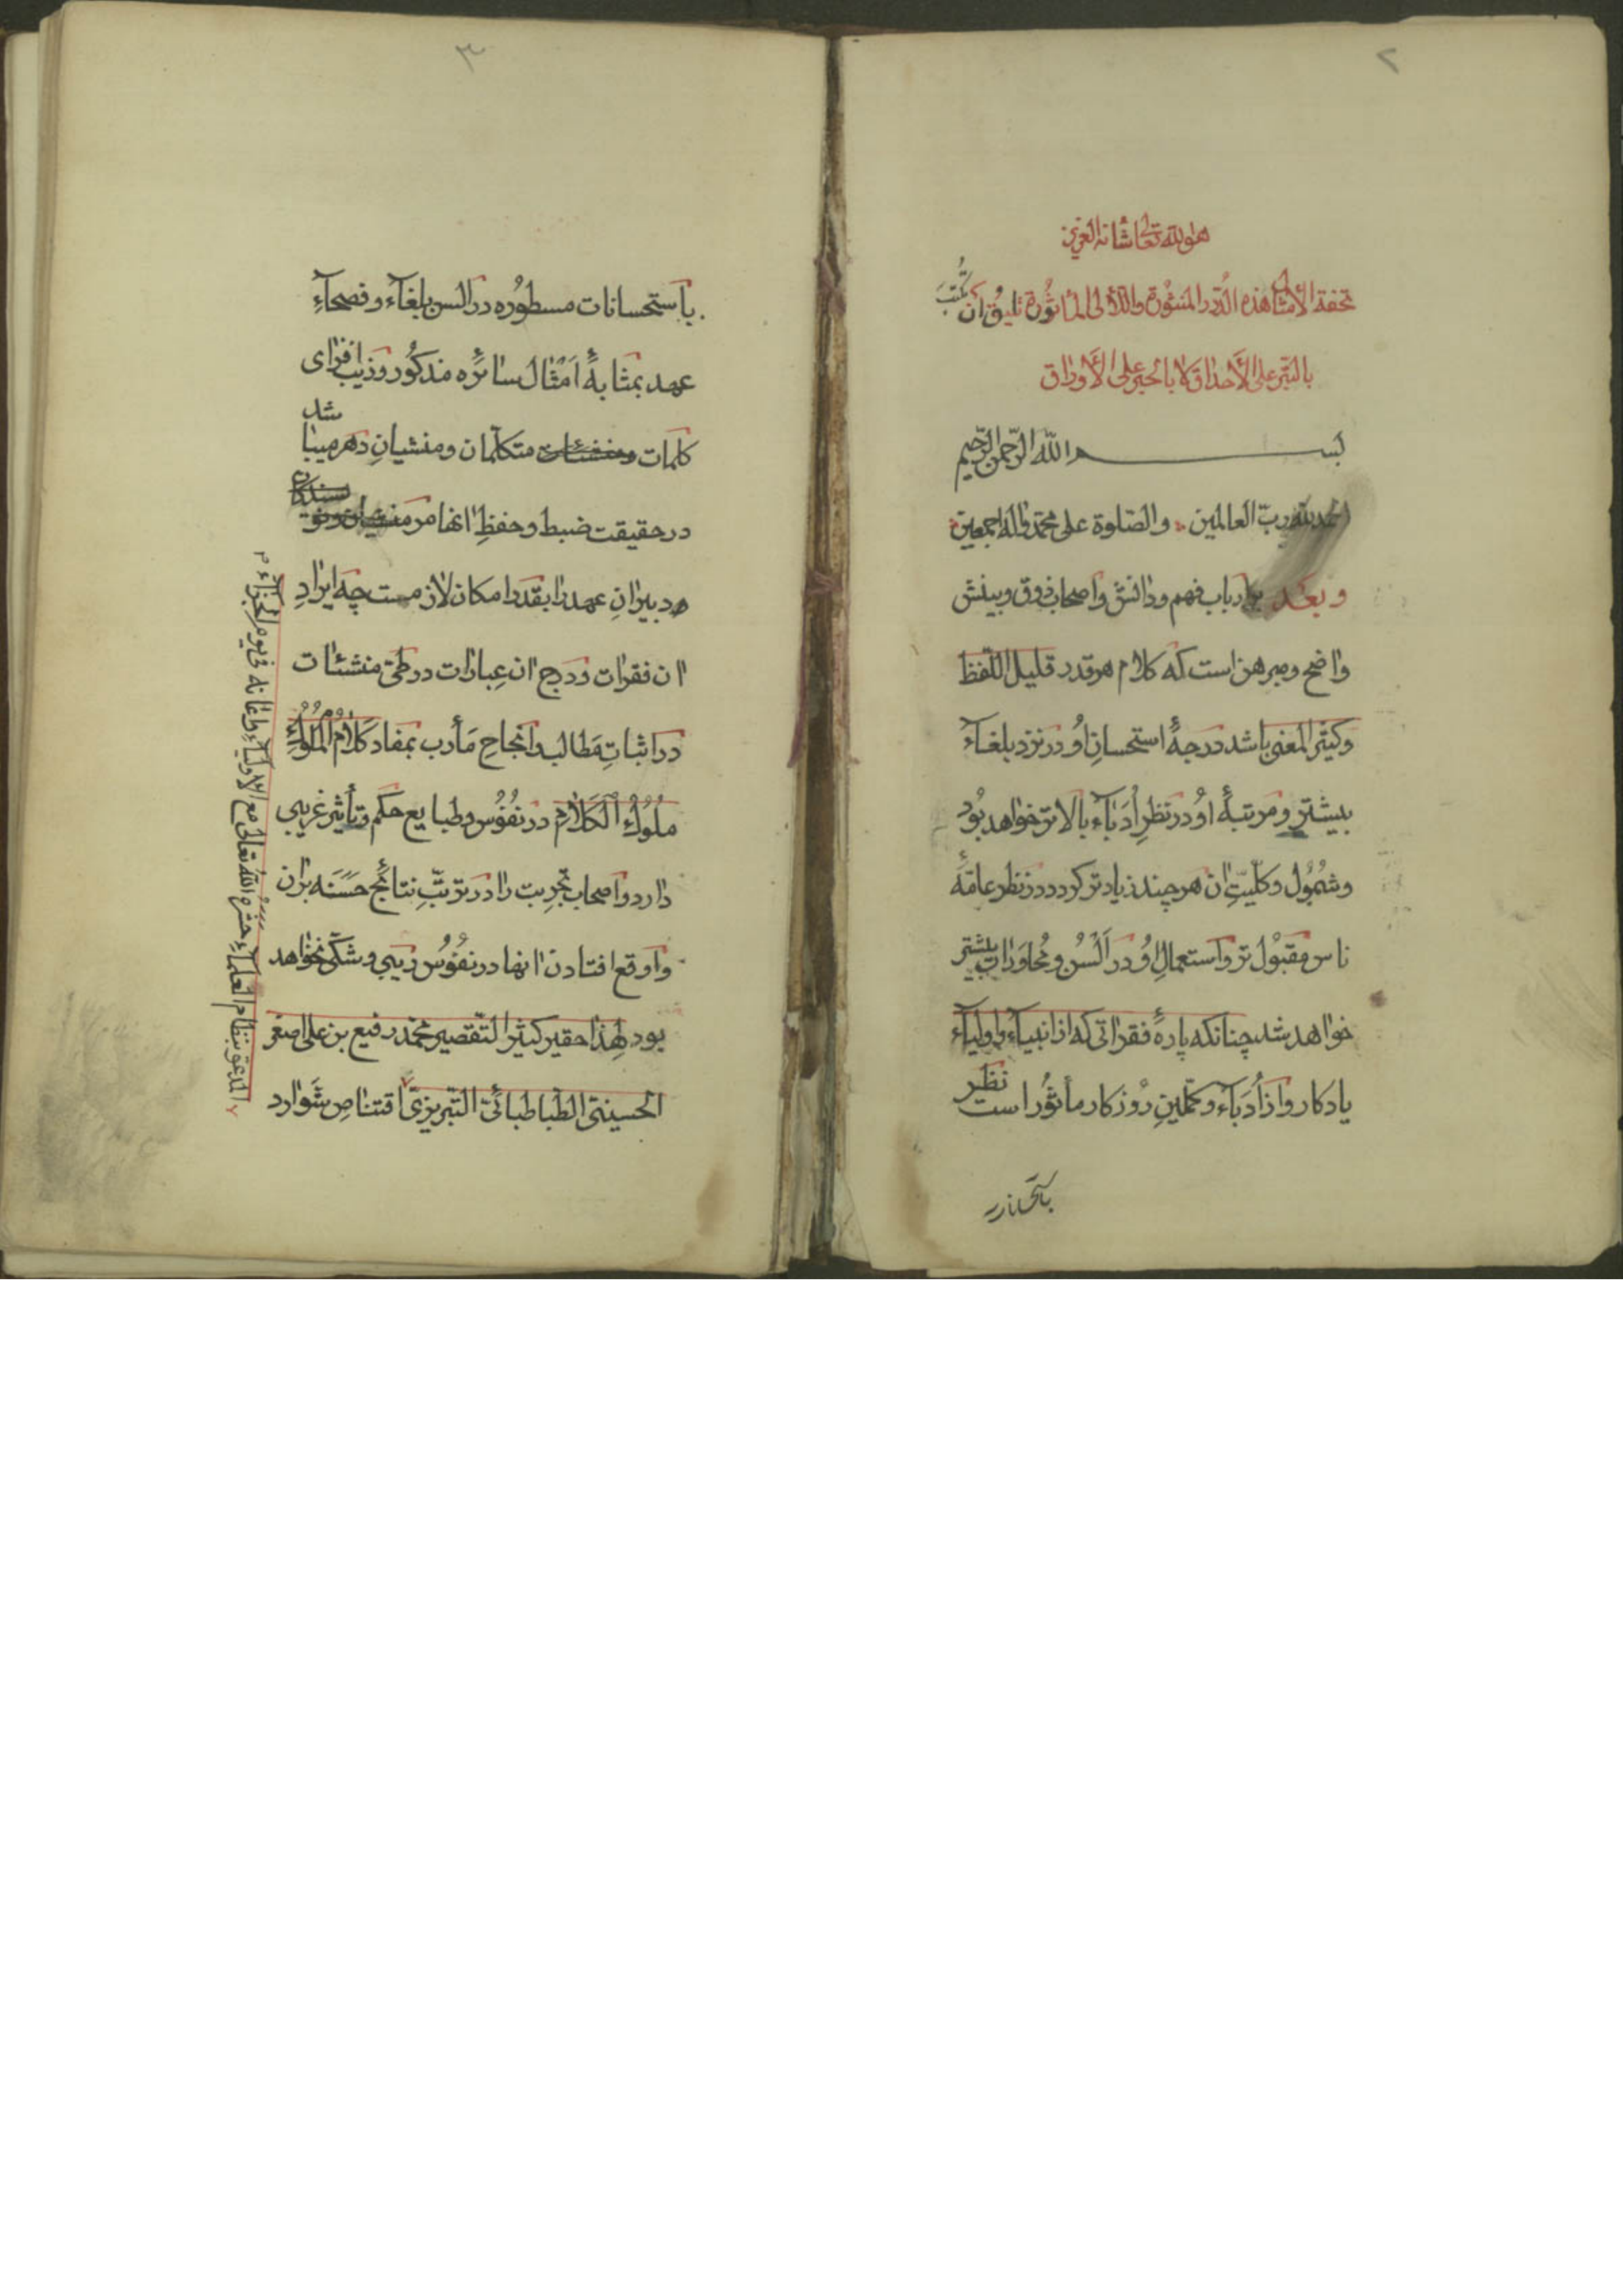 ۲
هو الله تعالی شانه العزیز
تحفة الأمثال هذه الدّرر المنثورة واللّآلی المأثورة تلیق أن تکتب
بالتبر علی الأحداق لا بالحبر علی الأوراق
بسم الله الرّحمن الرّحیم
الحمد لله ربّ العالمین والصّلوة علی محمّد واله اجمعین
وبعد بر ارباب فهم ودانش واصحاب ذوق وبینش
واضح ومبرهن است که کلام هر قدر قلیل اللّفظ
وکثیر المعنی باشد درجهٔ استحسانِ اُو در نزد بلغآء
بیشتر ومرتبهٔ اوُ در نظرِ اُدَبآء بالاتر خواهد بُود
وشمُوُل وکلّیّتِ ان هر چند زیادتر کردد در نظر عامّهٔ
ناس مقبُول تر واستعمالِ اوُ در اَلْسُن ومُحاوَرات بیشتر
خواهد شد چنانکه پارهٔ فقراتی که از انبیآء واولیآء
یادکار واز اُدَبآء وکمّلینِ رُوزکار مأثوُر است نظر
باستحسانات
۳
باستحسانات مسطوُره در السن بلغآء وفصحآءِ
عهد بمثابهٔ اَمْثال سائره مذکوُر وزیب افزای
کلمات متکلّمان ومنشیانِ دهر میباشد
در حقیقت ضبط وحفظِ انها مر
دبیرانِ عهد را بقدر امکان لازمست چه ایرادِ
ان فقرات ودرج ان عِبارات در طیّ منشئات
در اثباتِ مَطالب وانجاحِ مَأرب بمفاد کَلامُ الْمُلُوكِ
مُلُوكُ الْکَلامِ در نفُوُس وطبایع حکم وتأثیر غریبی
دارد واصحاب تجرِبت را در ترتّبِ نتائج حسَنَه بران
واوقع افتادن انها در نفوُس ریبی وشکّی نخواهد
بود لهذا حقیر کثیر التّقصیر محمّد رفیع بن علی اصغر
الحسینیّ الطّباطبائیّ التّبریزیّ اقتناصِ شَوارد
المدعوّ بنظام العلمآء حشره الله تعالی مع الاولیآء واعانه فی یوم الجزآء